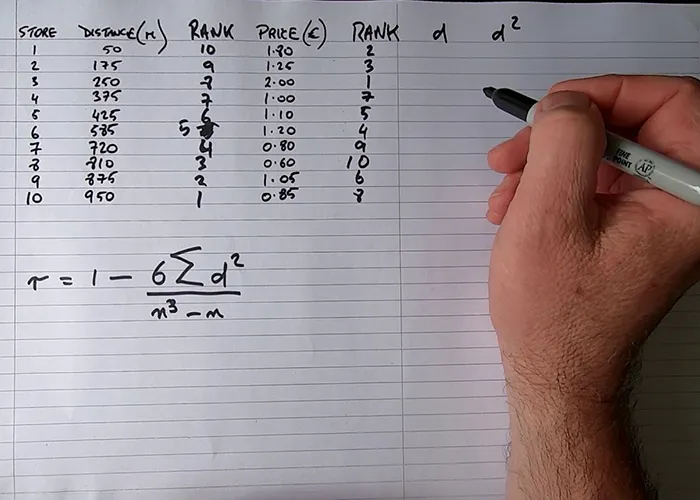 STORE DISTANCE(M) RANK PRICE(€) RANK d d²
1 50 10 1.80 2
2 175 9 1.25 3
3 250 8 2.00 1
4 375 7 1.00 7
5 425 6 1.10 5
6 585 5 1.20 4
7 720 4 0.80 9
8 810 3 0.60 10
9 875 2 1.05 6
10 950 1 0.85 8
r = 1 - 6∑d² / n³ - n
FINE POINT AP